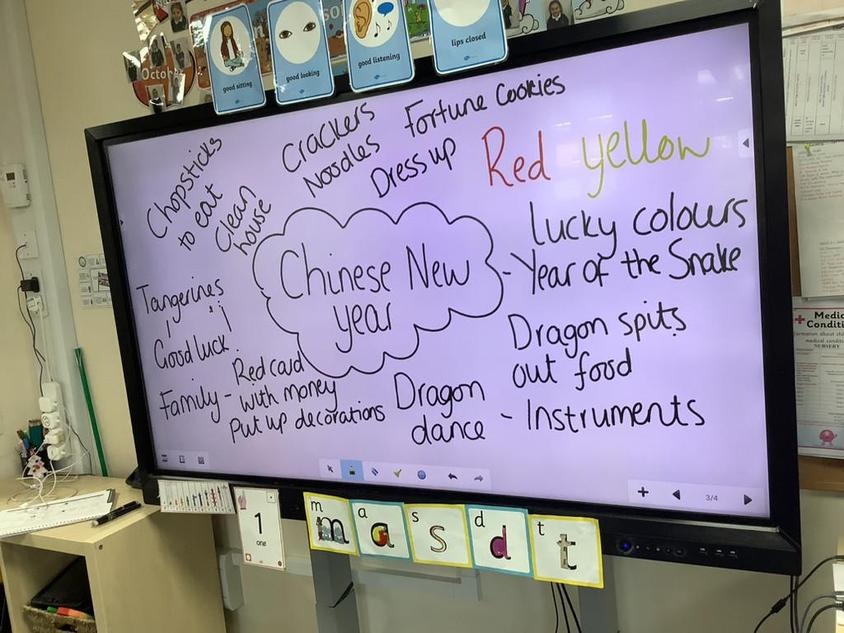 October
good sitting
good looking
good listening
lips closed
Chopsticks
to eat
Clean
house
Crackers
Noodles
Fortune Cookies
Dress up
Red yellow
lucky colours
Chinese New
year
- Year of the Snake
Tangerines
Good luck
Family - Red card
with money
Put up decorations
Dragon
dance - Instruments
Dragon spits
out food
3/4
1
one
m
m
a
a
s
s
d
d
t
t
Medic
Conditi
medical condition
NURSERY